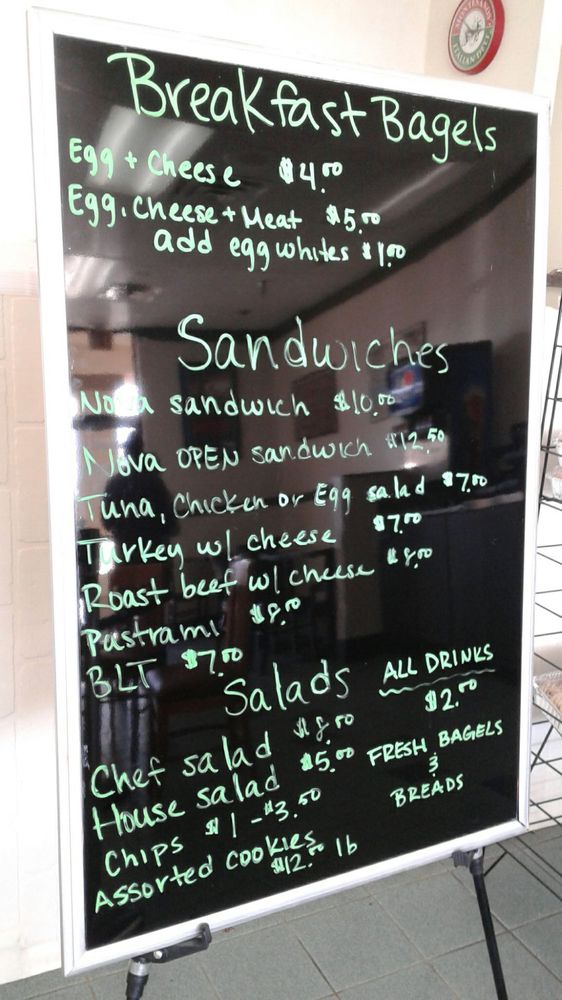 Breakfast Bagels
Egg + Cheese $4.00
Egg, Cheese + Meat $5.00
add egg whites $1.00
Sandwiches
Nova sandwich $10.00
Nova OPEN sandwich $12.50
Tuna, Chicken or Egg salad $7.00
Turkey w/ cheese $7.00
Roast beef w/ cheese $8.00
Pastrami $8.00
BLT $7.00
Salads
Chef salad $8.00
House salad $5.00
Chips $1 - $3.50
Assorted cookies
$12.00 lb
ALL DRINKS
$2.00
FRESH BAGELS
&
BREADS
ITALIAN DELI